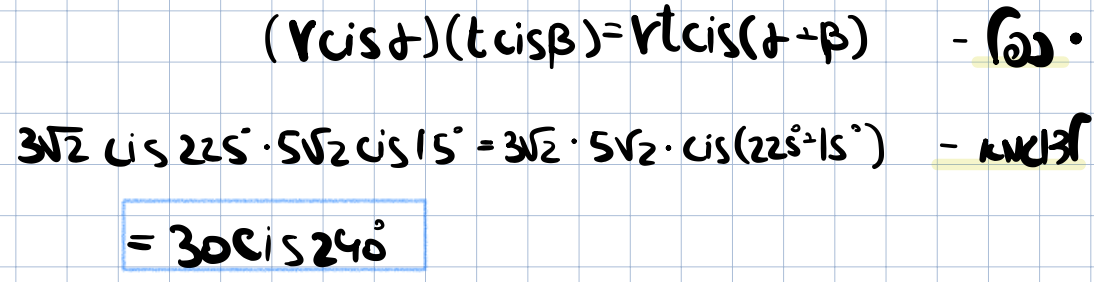 • כפל - (r cis α)(t cis β) = rt cis(α + β)
לדוגמא - 3√2 cis 225° · 5√2 cis 15° = 3√2 · 5√2 · cis(225° + 15°)
= 30 cis 240°